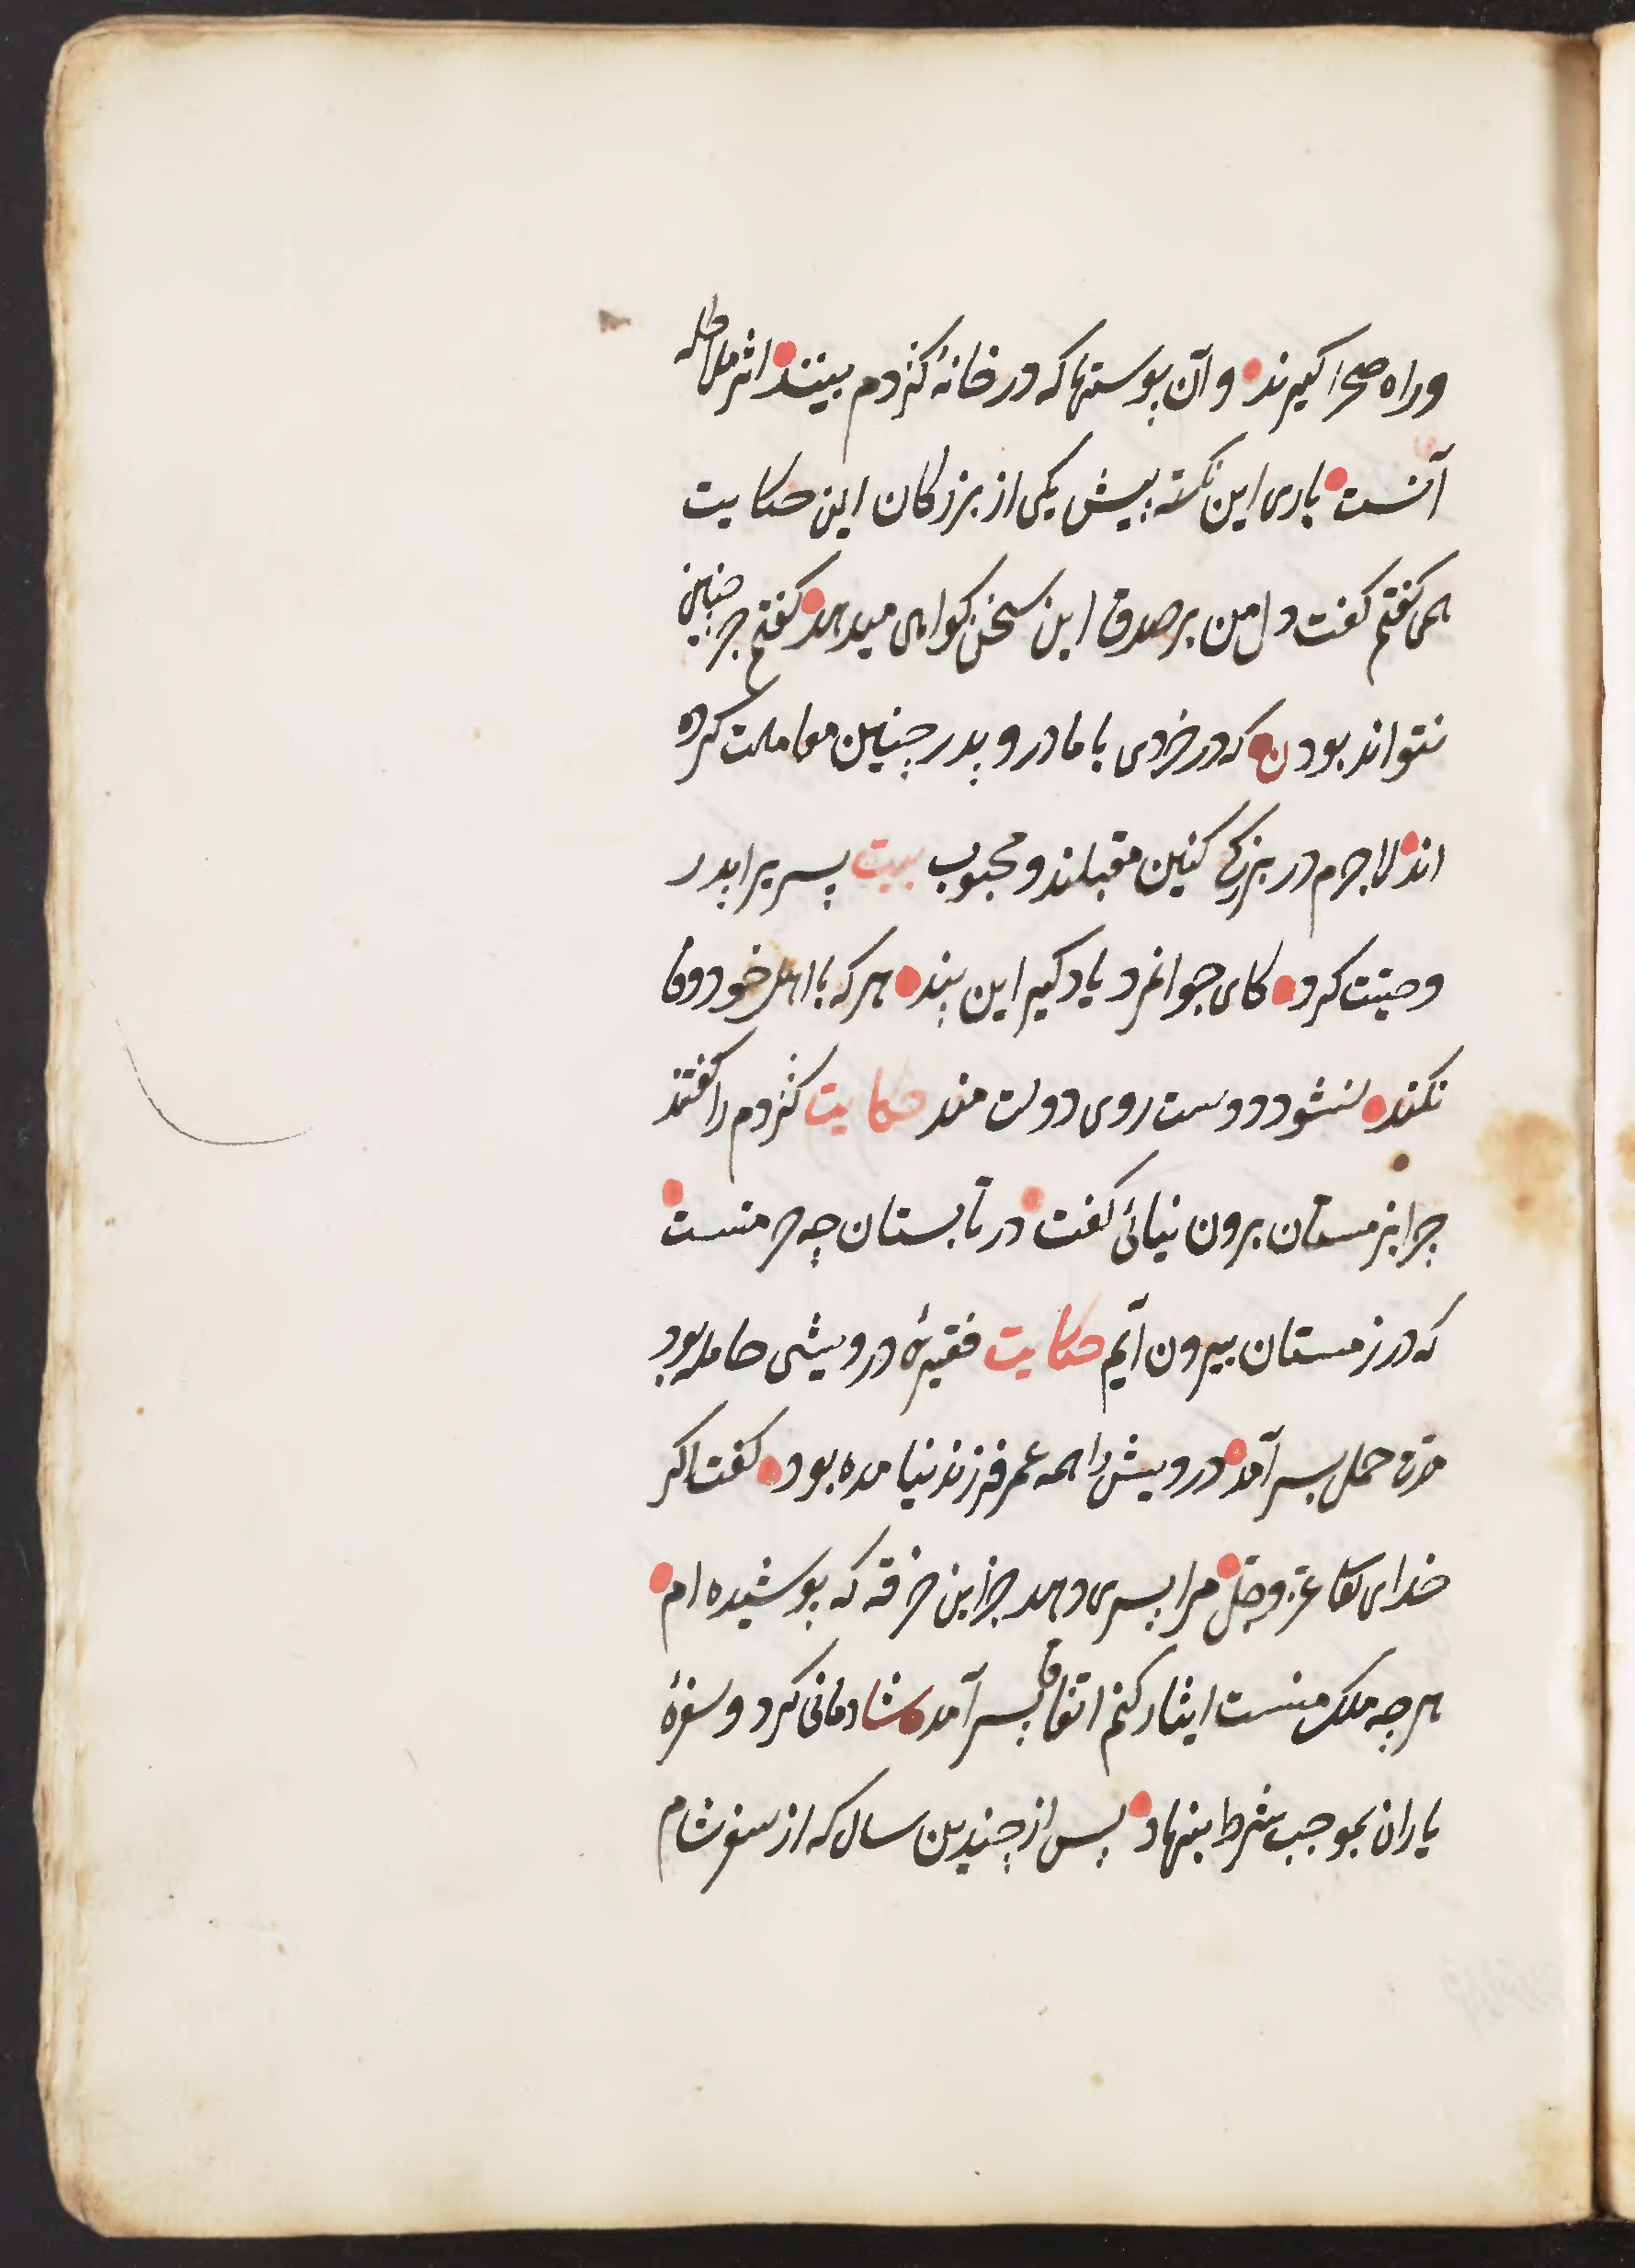 وراه صحرا کیرند وآن پوستها که در خانهٔ کژدم بینند اثر ملاحظه
آنست باری این نکته پیش یکی از بزرکان این حکایت
همی کفتم کفت دل من بر صدق این سخن کواهی میدهد کفتم جز چنین
نتواند بودن که در خردی با مادر و پدر چنین معاملت کرده
اند لاجرم در بزرکی کنین مقبلند و محبوب بیت پسریرا پدر
وصیّت کرد کای جوانمرد یاد کیر این پند هر که با اهل خود وفا
نکند نشود دوست روی دولت مند حکایت کژدم را کفتند
چرا بزمستان برون نیائی کفت در تابستان چه حرمتست
که در زمستان بیرون آیم حکایت فقیرهٔ درویشی حامله بود
مدّت حمل بسر آمد درویش را همه عمر فرزند نیامده بود کفت اکر
خدای تعا عزّ وجلّ مرا پسری دهد جز این خرقه که پوشیده ام
هر چه ملک منست ایثار کنم اتفاقا پسر آمد شادمانی کرد و سفرهٔ
یاران بموجب شرط بنهاد پس از چندین سال که از سفر شام